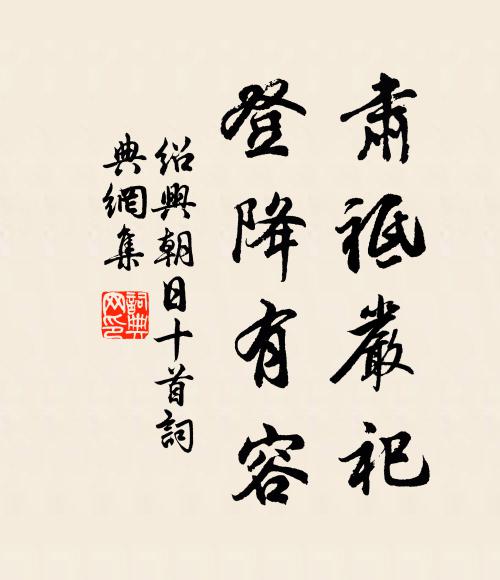 肅祗嚴祀
登降有容
紹興朝日十首詞
典網集
詞典
网印